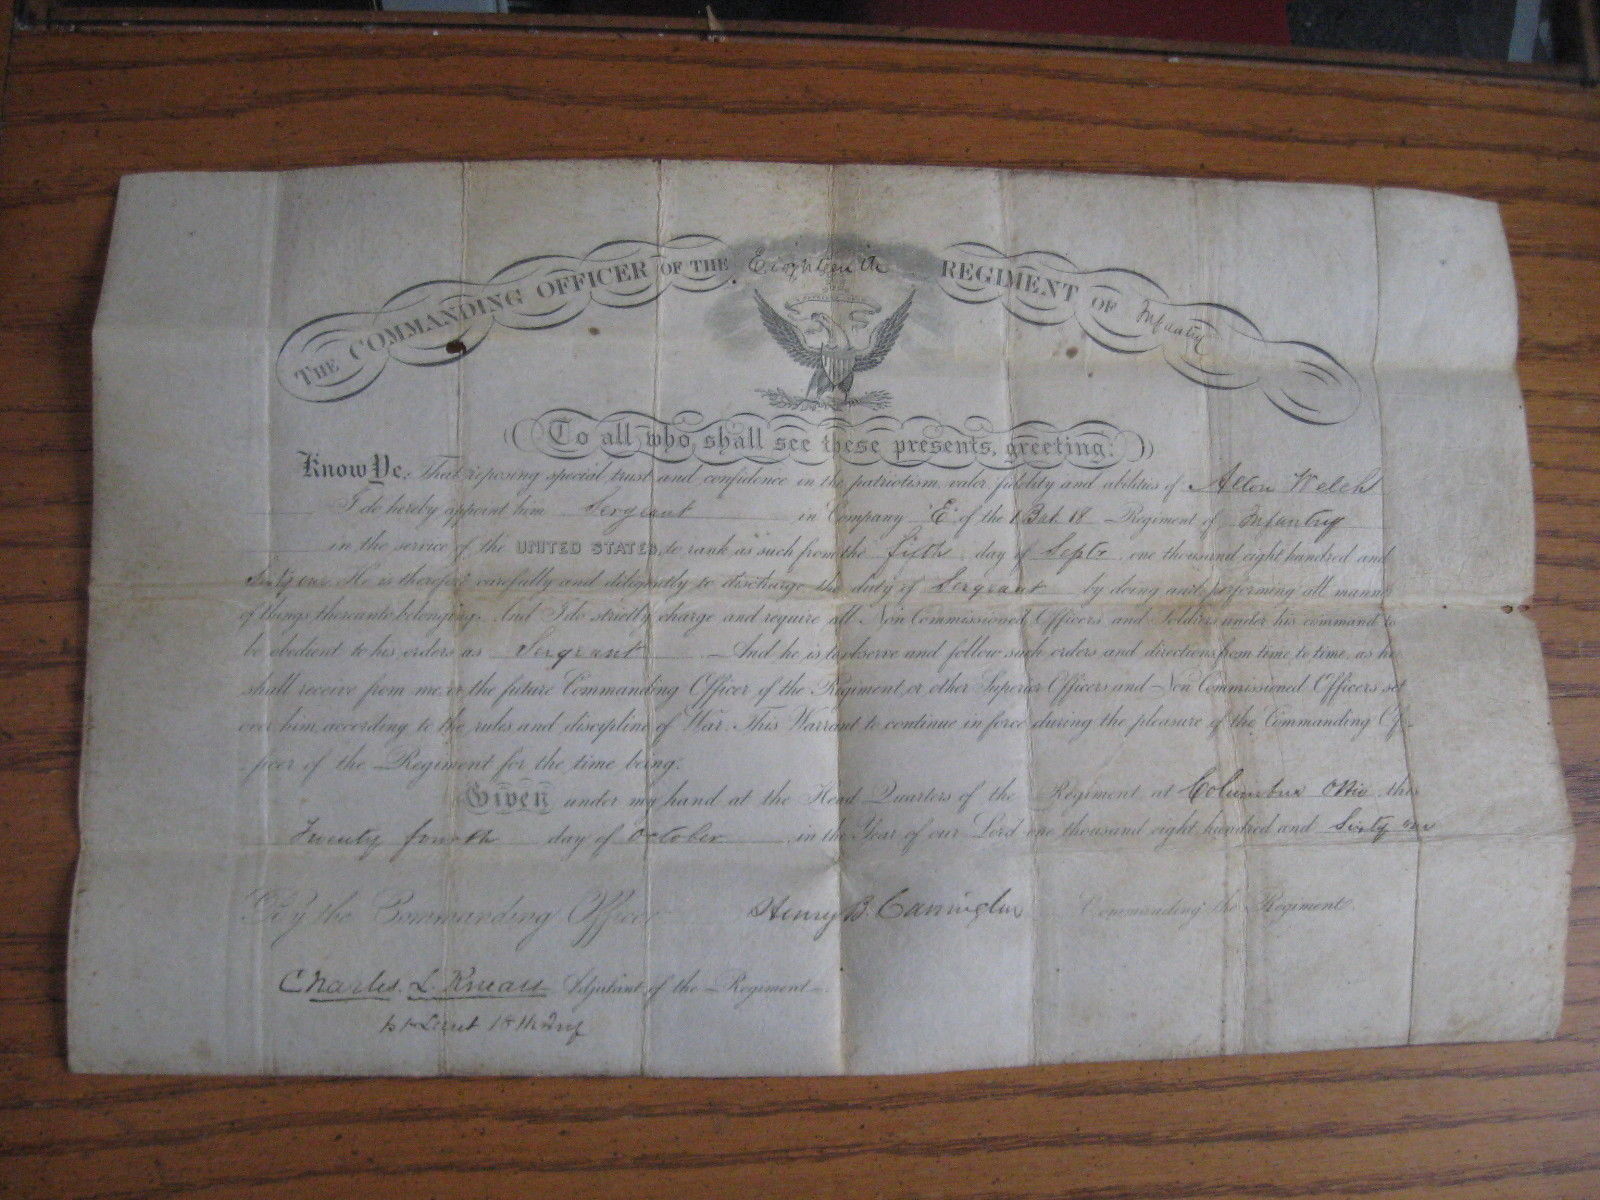 THE COMMANDING OFFICER OF THE Eighteenth REGIMENT OF Infantry
To all who shall see these presents, greeting:
Know Ye, That reposing special trust and confidence in the patriotism, valor, fidelity and abilities of Alton Welch
I do hereby appoint him Sergeant in Company "E" of the 1 Bat. 18 Regiment of Infantry
in the service of the UNITED STATES, to rank as such from the fifth day of Sept. one thousand eight hundred and
Sixty one. He is therefore carefully and diligently to discharge the duty of Sergeant by doing and performing all manner
of things thereunto belonging. And I do strictly charge and require all Non Commissioned Officers and Soldiers under his command to
be obedient to his orders as Sergeant And he is to observe and follow such orders and directions from time to time, as he
shall receive from me, or the future Commanding Officer of the Regiment, or other Superior Officers and Non Commissioned Officers set
over him, according to the rules and discipline of War. This Warrant to continue in force during the pleasure of the Commanding Of-
ficer of the Regiment for the time being.
Given under my hand at the Head Quarters of the Regiment at Columbus Ohio this
Twenty fourth day of October in the Year of our Lord one thousand eight hundred and Sixty one
By the Commanding Officer Henry B. Carrington Commanding the Regiment.
Charles L. Kneass Adjutant of the Regiment.
1st Lieut 18th Inf